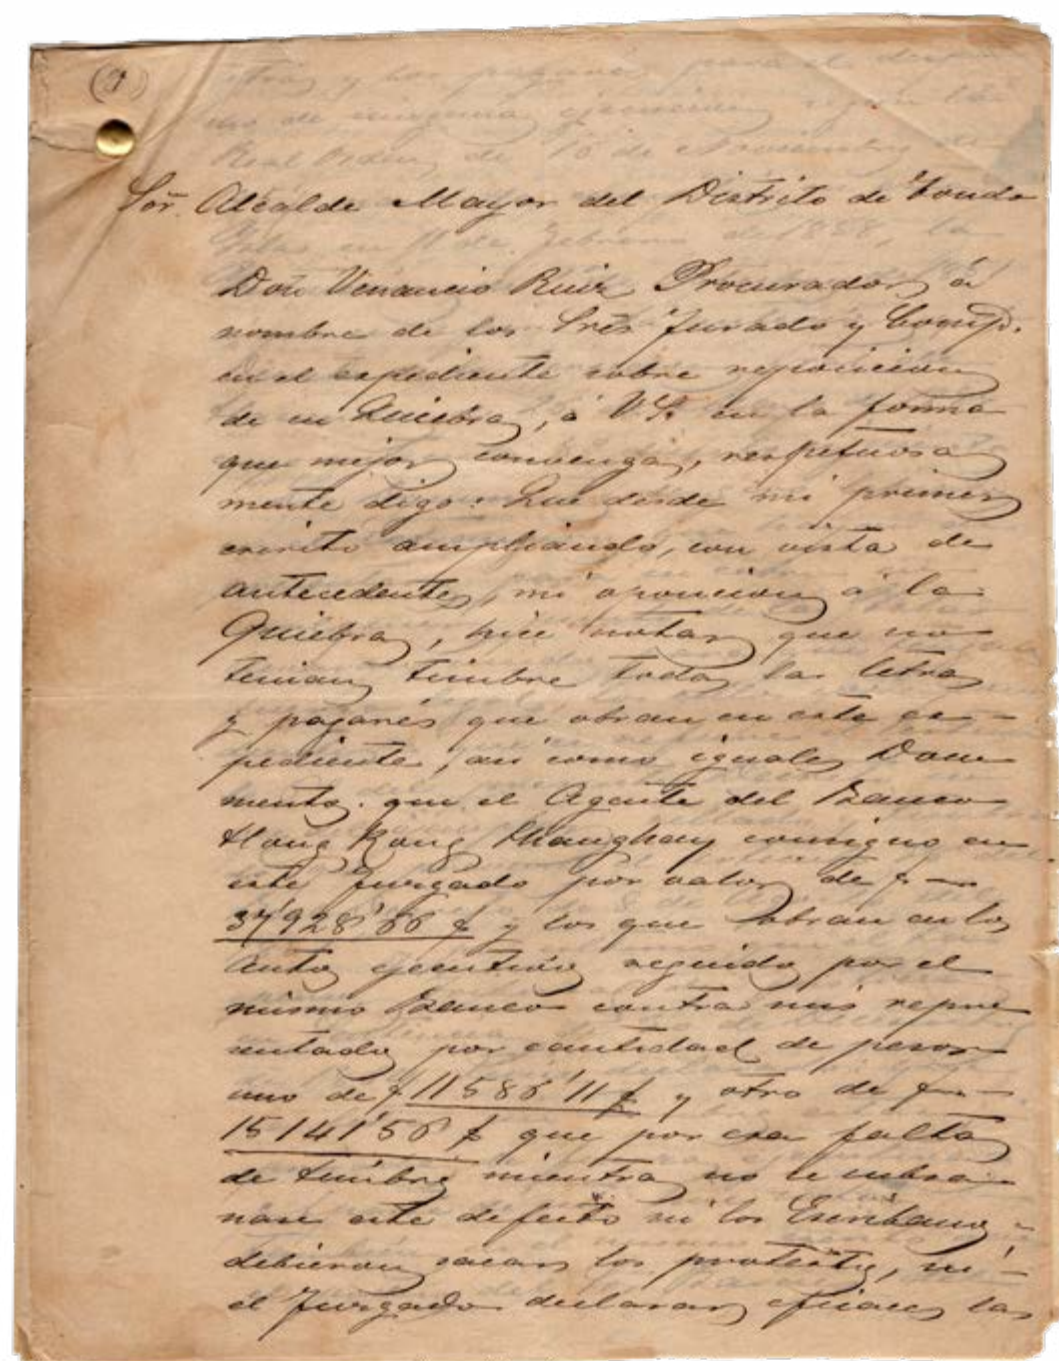 (1)
Sor. Alcalde Mayor del Distrito de Tondo
Don Venancio Ruiz Procurador á
nombre de los Sres Jurado y Comp.
en el expediente sobre reposicion
de su Quiebra, á V.S. en la forma
que mejor convenga, respetuosa
mente digo: Que desde mi primer
escrito ampliando, con vista de
antecedentes, mi oposicion á la
Quiebra, hice notar que no
tenian timbre todas las letras
y pagarés que obran en este ex-
pediente, asi como iguales Docu
mentos que el Agente del Banco
Hong Kong Shanghay consigno en
este Juzgado por valor de $
37928'66 $ y los que obran en los
autos ejecutivos seguidos por el
mismo Banco contra mis repre
sentados por cantidad de pesos
uno de $ 11586'11 $ y otro de $
15141'56 $ que por esa falta
de timbre mientras no se subsa-
nase este defecto ni los Escribanos
debieron sacar los protestos, ni
el Juzgado declarar eficaces las